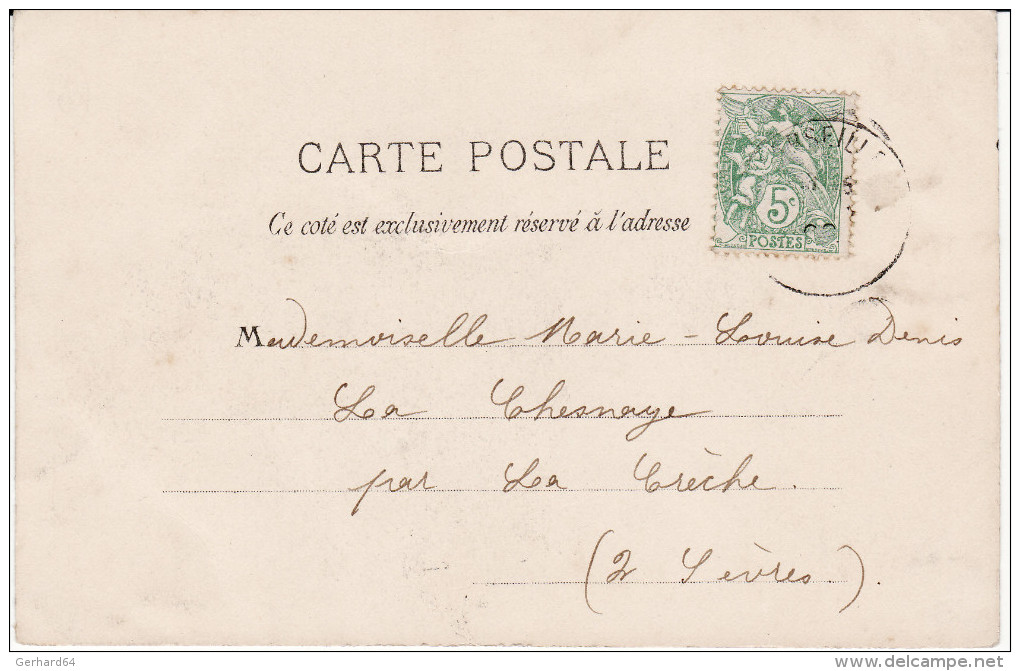 CARTE POSTALE
Ce coté est exclusivement réservé à l'adresse
5c
POSTES
Mademoiselle Marie-Louise Denis
La Chesnaye
par La Crèche.
(2 Sèvres).
Gerhard64
delcampe.net